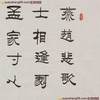 燕趙悲歌
士相逢劇
孟家寸心